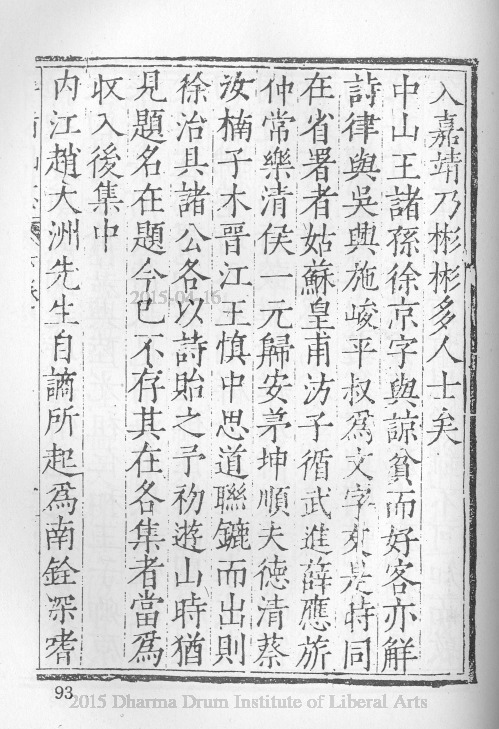 入嘉靖乃彬彬多人士矣
中山王諸孫徐京字與諒貧而好客亦解
詩律與吳興施峻平叔爲文字來是時同
在省署者姑蘇皇甫汸子循武進薛應旂
仲常樂清侯一元歸安茅坤順夫德清蔡
汝楠子木晉江王慎中思道聯鑣而出則
徐治具諸公各以詩貽之予初遊山時猶
見題名在題今已不存其在各集者當爲
收入後集中
内江趙大洲先生自謫所起爲南銓深嗜
93
2015-04-16
2015 Dharma Drum Institute of Liberal Arts